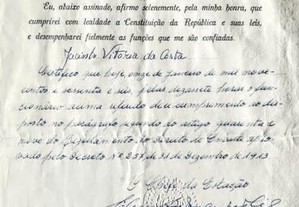 Eu, abaixo assinado, afirmo solenemente, pela minha honra, que
cumprirei com lealdade a Constituição da República e suas leis,
e desempenharei fielmente as funções que me são confiadas.
Jacinto Vitória da Costa
Certifico que hoje, onze de Janeiro de mil nove-
centos e sessenta e seis, pelas dezassete horas o
numa cumprimento ao dis-
posto no parágrafo do artigo quarenta e
nove do Regulamento do
vado pelo Decreto Nº 257 de 31 de Dezembro de 1913
O Chefe da Estação